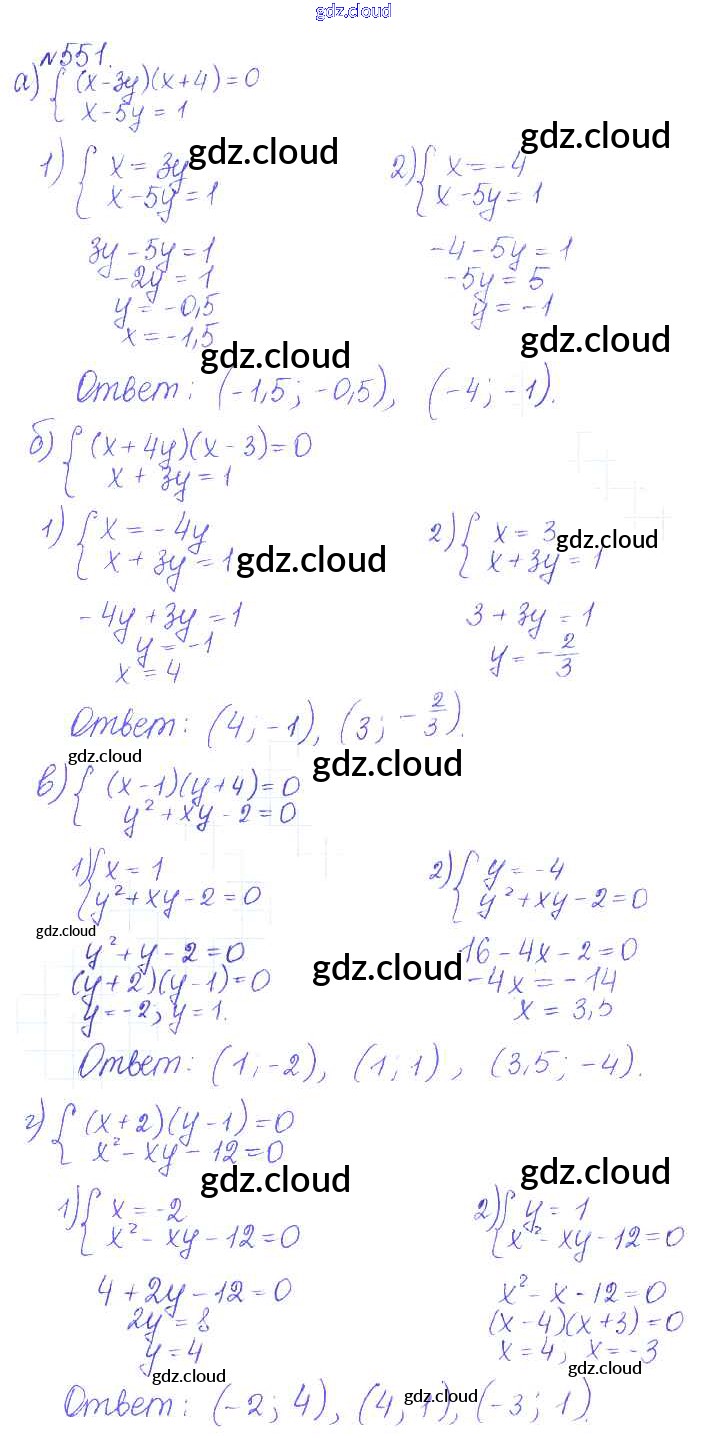 gdz.cloud
№551.
а) { (x-3y)(x+4)=0
x-5y=1
gdz.cloud
gdz.cloud
1) { x=3y
x-5y=1
2) { x=-4
x-5y=1
3y-5y=1
-2y=1
y=-0,5
x=-1,5
-4-5y=1
-5y=5
y=-1
gdz.cloud
gdz.cloud
Ответ: (-1,5; -0,5), (-4; -1).
б) { (x+4y)(x-3)=0
x+3y=1
1) { x=-4y
x+3y=1
gdz.cloud
2) { x=3
x+3y=1
gdz.cloud
-4y+3y=1
y=-1
x=4
3+3y=1
y=-2/3
Ответ: (4; -1), (3; -2/3).
gdz.cloud
gdz.cloud
в) { (x-1)(y+4)=0
y²+xy-2=0
1) { x=1
y²+xy-2=0
2) { y=-4
y²+xy-2=0
gdz.cloud
y²+y-2=0
(y+2)(y-1)=0
y=-2; y=1.
gdz.cloud
16-4x-2=0
-4x=-14
x=3,5
Ответ: (1; -2), (1; 1), (3,5; -4).
г) { (x+2)(y-1)=0
x²-xy-12=0
gdz.cloud
gdz.cloud
1) { x=-2
x²-xy-12=0
2) { y=1
x²-xy-12=0
4+2y-12=0
2y=8
y=4
x²-x-12=0
(x-4)(x+3)=0
x=4, x=-3
gdz.cloud
gdz.cloud
Ответ: (-2; 4), (4; 1), (-3; 1).
gdz.cloud